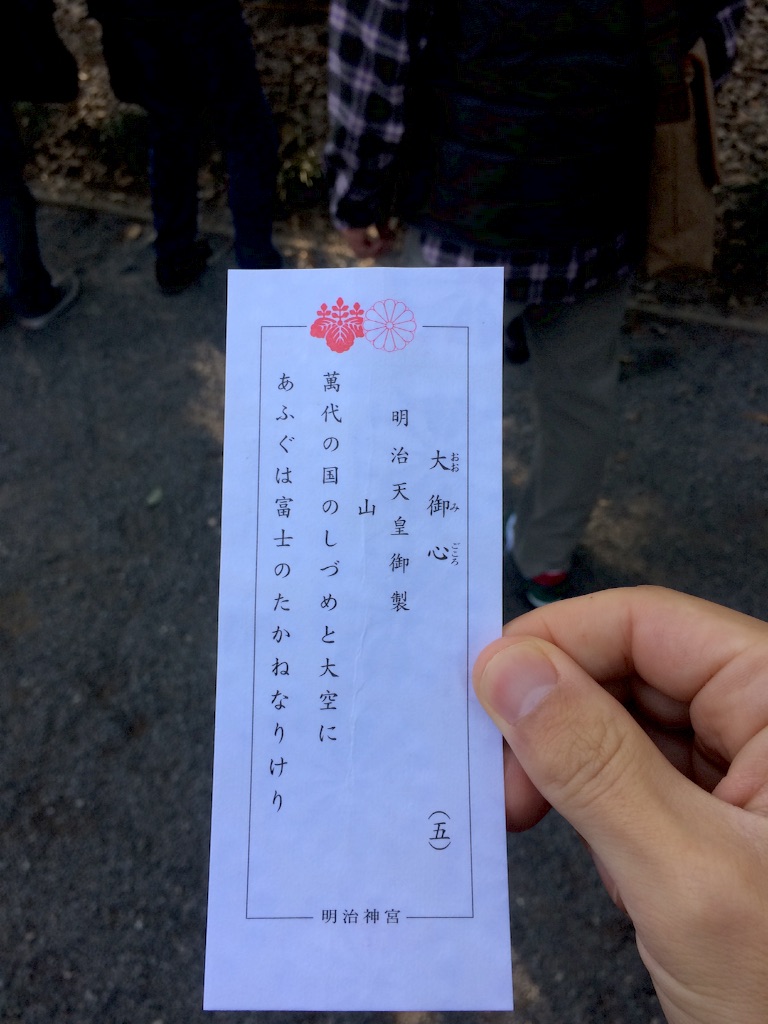 大御心
おおみごころ
（五）
明治天皇御製
山
萬代の国のしづめと大空に
あふぐは富士のたかねなりけり
明治神宮